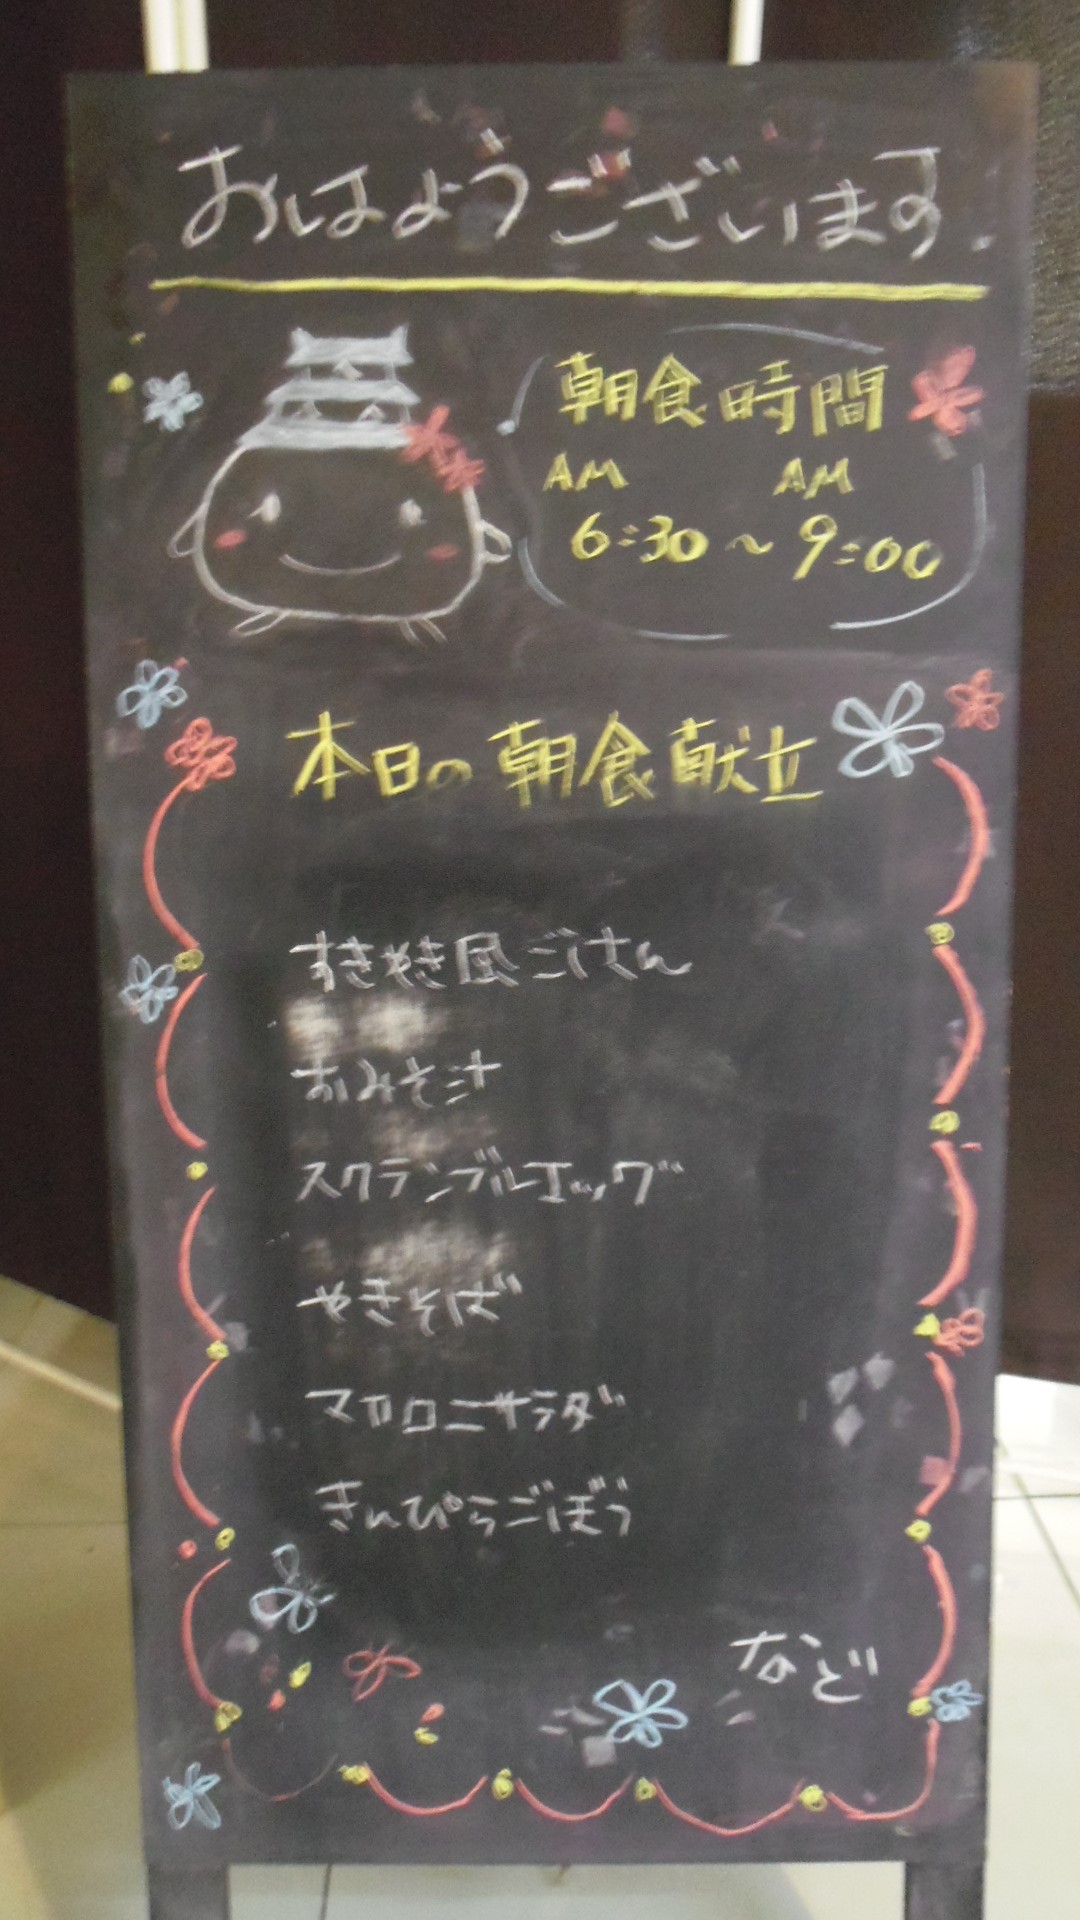 おはようございます
朝食時間
AM AM
6:30～9:00
本日の朝食献立
すきやき風ごはん
おみそ汁
スクランブルエッグ
やきそば
マカロニサラダ
きんぴらごぼう
など